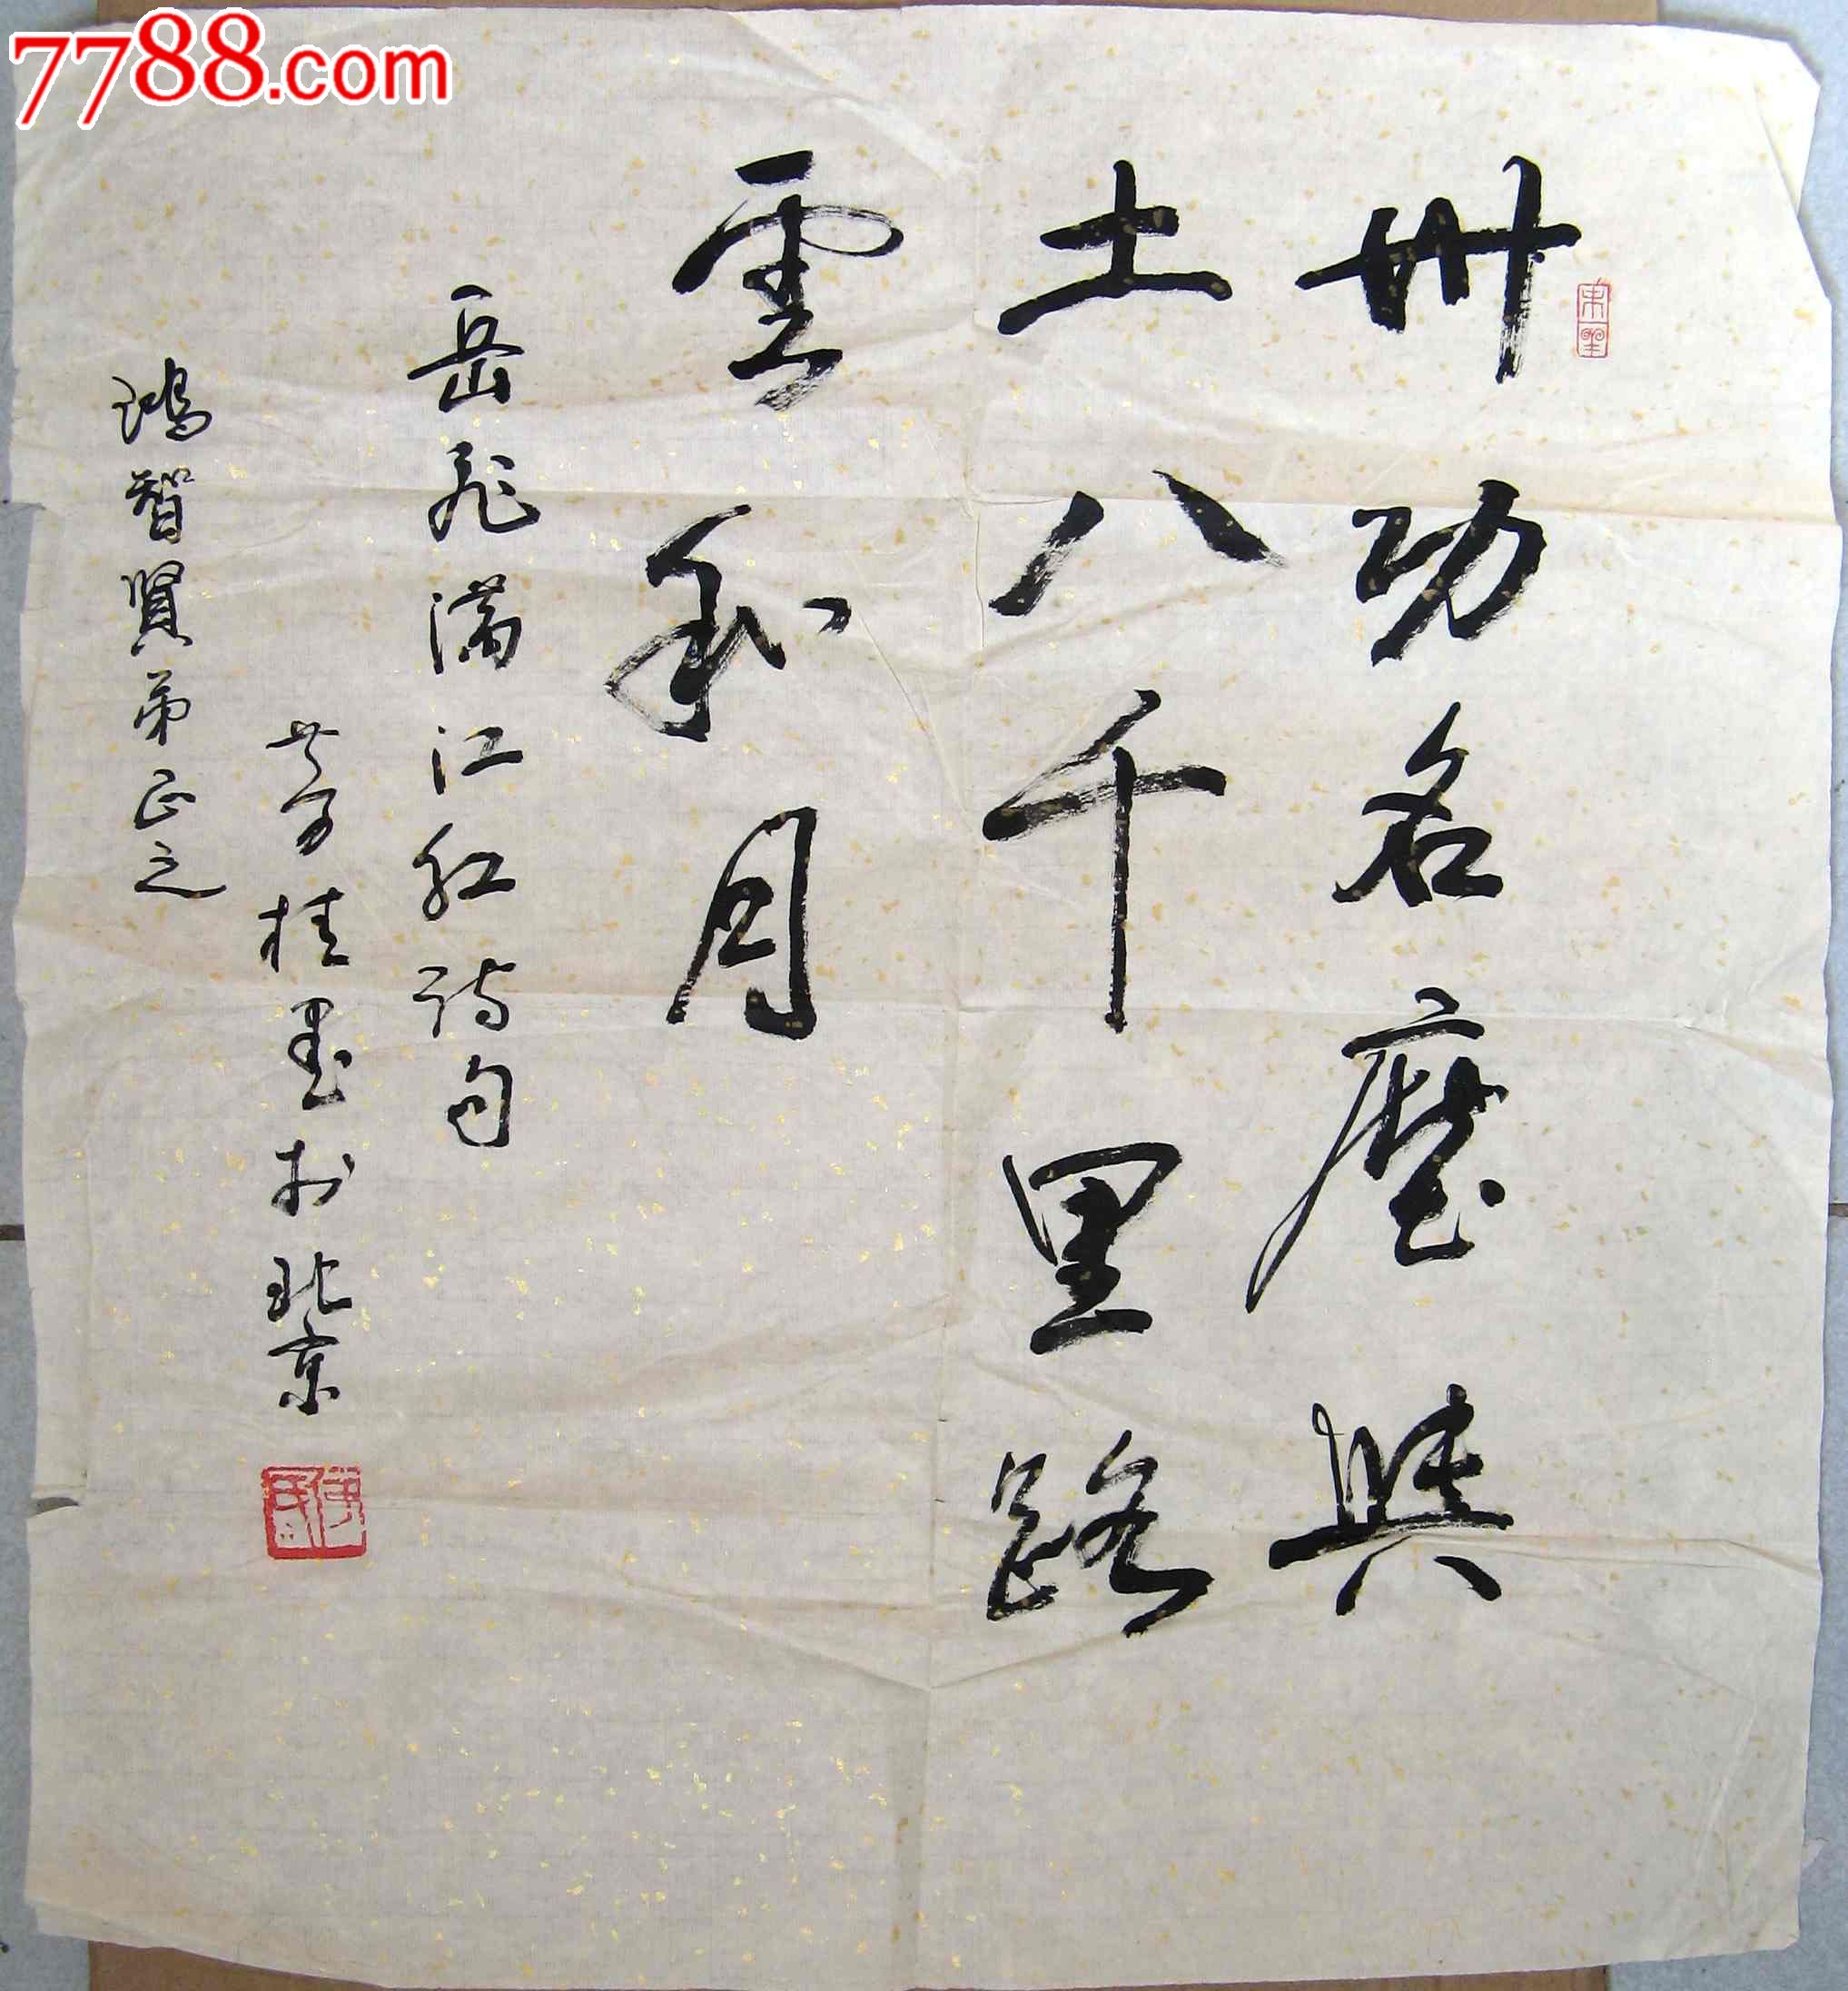 7788.com
卅功名塵與
土八千里路
雲和月
岳飛满江红詩句
桂墨於北京
鴻智賢弟正之